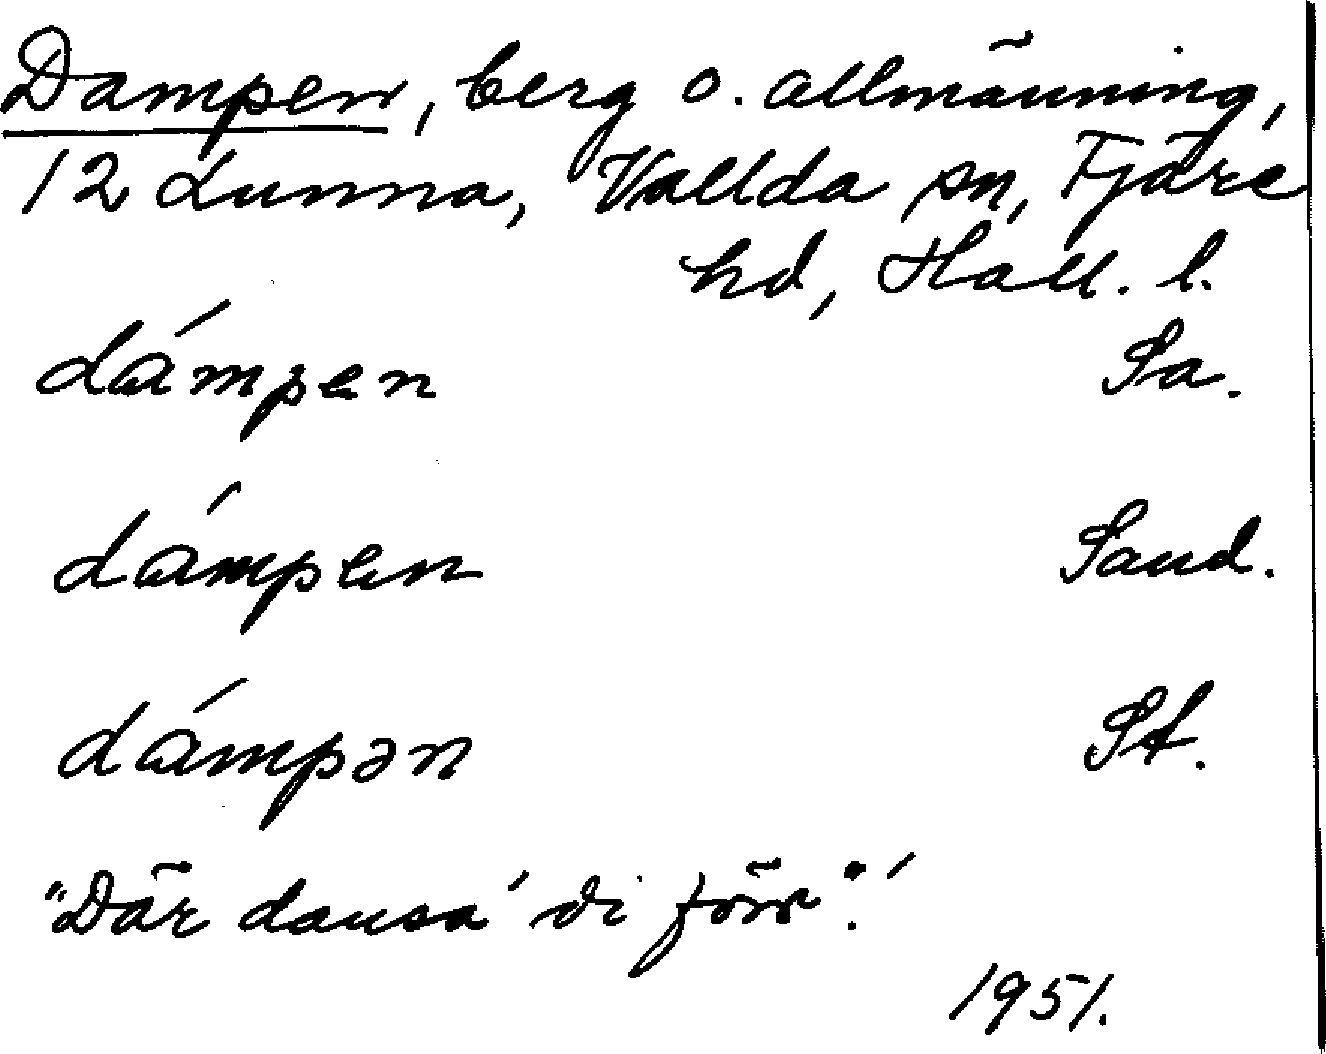 Dampen, berg o. allmänning,
12 Lunna, Vallda sn, Fjäre
hd, Hall. l.
dámpen Sa.
dámpen Sand.
dámpən St.
"Där dansa' di förr".'
1951.